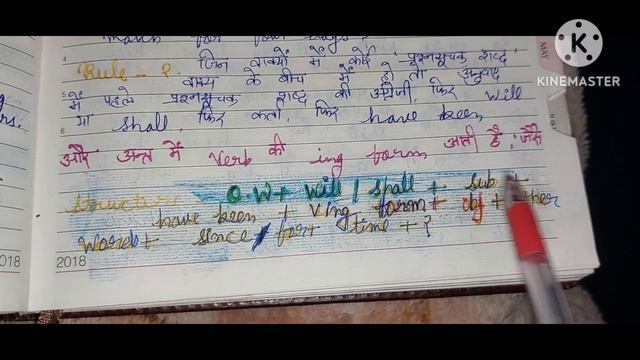 march for four days?
Rule - 2. जिन वाक्यों में कोई प्रश्नसूचक शब्द
वाक्य के बीच में हो तो अनुवाद
में पहले प्रश्नसूचक शब्द की अंग्रेजी, फिर will
या shall, फिर कर्ता, फिर have been
और अन्त में verb की ing form आती है, जैसे
Structure Q.W+ will / shall + sub +
have been + Ving form + obj + other
word + since / for + time + ?
rs.
2018
2018
MAY
K
KINEMASTER